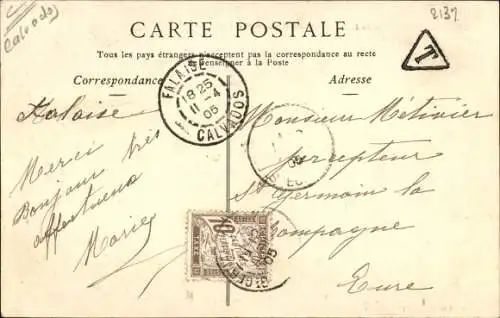 Calvados
2137
CARTE POSTALE
T
Tous les pays étrangers n'acceptent pas la correspondance au recto
Se renseigner à la Poste
Correspondance
Adresse
FALAISE
18 25
11 -4
05
CALVADOS
Falaise
Merci
Bonjour très
affectueux
Marie
Monsieur Métivier
percepteur
St Germain la
Campagne
Eure
05
10
05